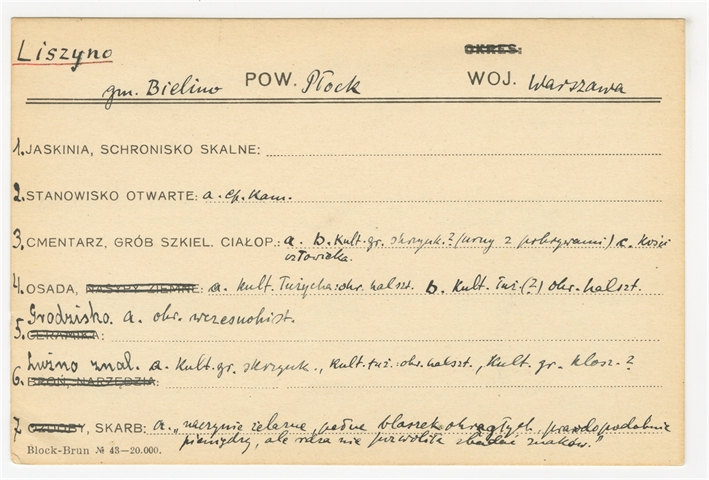 Liszyno
OKRES:
gm. Bielino POW. Płock WOJ. Warszawa
1. JASKINIA, SCHRONISKO SKALNE:
2. STANOWISKO OTWARTE: a. ep. kam.
3. CMENTARZ, GRÓB SZKIEL. CIAŁOP.: a. b. Kult. gr. skrzynk.? (urny z pokrywami) c. Kości
człowieka.
4. OSADA, NASYPY ZIEMNE: a. kult. łużycka: okr. halszt. b. Kult. łuż. (?) okr. halszt.
Grodzisko. a. okr. wczesnohist.
5. CERAMIKA:
Luźno znal. a. Kult. gr. skrzynk., Kult. łuż.: okr. halszt., Kult. gr. klosz.?
6. BROŃ, NARZĘDZIA:
7. OZDOBY, SKARB: a. „naczynie żelazne, pełne blaszek okrągłych, prawdopodobnie
pieniędzy, ale rdza nie pozwoliła zbadać znaków."
Block-Brun № 43—20.000.